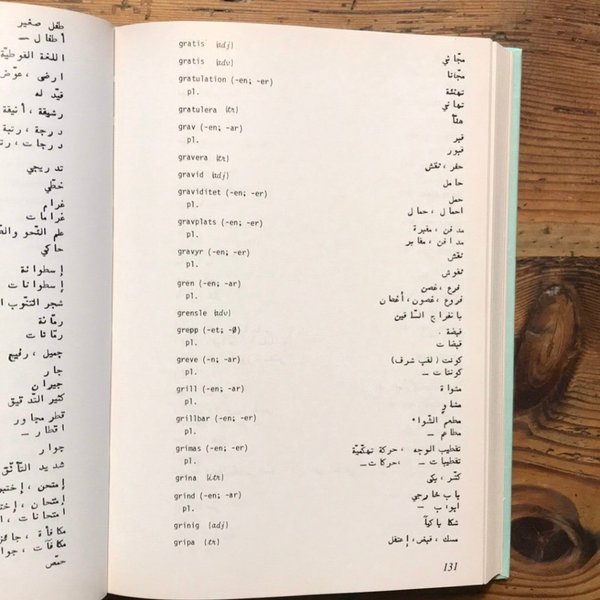 طفل صغير
أطفال —
اللغة القوطيّة
ارضى ، عوّض
قيّد له
رشيقة ، أنيقة
درجة ، رتبة
درجات ، رتب
تدريجي
خطّي
غرام
غرامات
علم النحو والص
حاكي
إسطوانة
إسطوانات
شجر التنّوب
رمّانة
رمّانات
جميل ، رفيع
جار
جيران
كثير التدقيق
قطر مجاور
اقطار —
جوار
شديد التأنّق
إمتحن ، إختبر
إمتحان ، إختبا
امتحانات ، ا
مكافأة ، جائز
مكافآت ، جوا
حمّص
gratis (adj) مجّاني
gratis (adv) مجّانا
gratulation (-en; -er) تهنئة
pl. تهاني
gratulera (tr) هنّأ
grav (-en; -ar) قبر
pl. قبور
gravera (tr) حفر ، نقش
gravid (adj) حامل
graviditet (-en; -er) حمل
pl. احمال ، حمال
gravplats (-en; -er) مدفن ، مقبرة
pl. مدافن ، مقابر
gravyr (-en; -er) نقش
pl. نقوش
gren (-en; -ar) فرع ، غصن
pl. فروع ، غصون ، أغصان
grensle (adv) بانفراج السّاقين
grepp (-et; -Ø) قبضة
pl. قبضات
greve (-n; -ar) كونت (لقب شرف)
pl. كونتات —
grill (-en; -ar) مشواة
pl. مشاو
grillbar (-en; -er) مطعم الشّواء
pl. مطاعم —
grimas (-en; -er) تقطيب الوجه ، حركة تهكّميّة
pl. تقطيبات — ، حركات —
grina (itr) كشّر ، بكى
grind (-en; -ar) باب خارجي
pl. ابواب —
grinig (adj) شكّا بكّا
gripa (tr) مسك ، قبض ، إعتقل
131